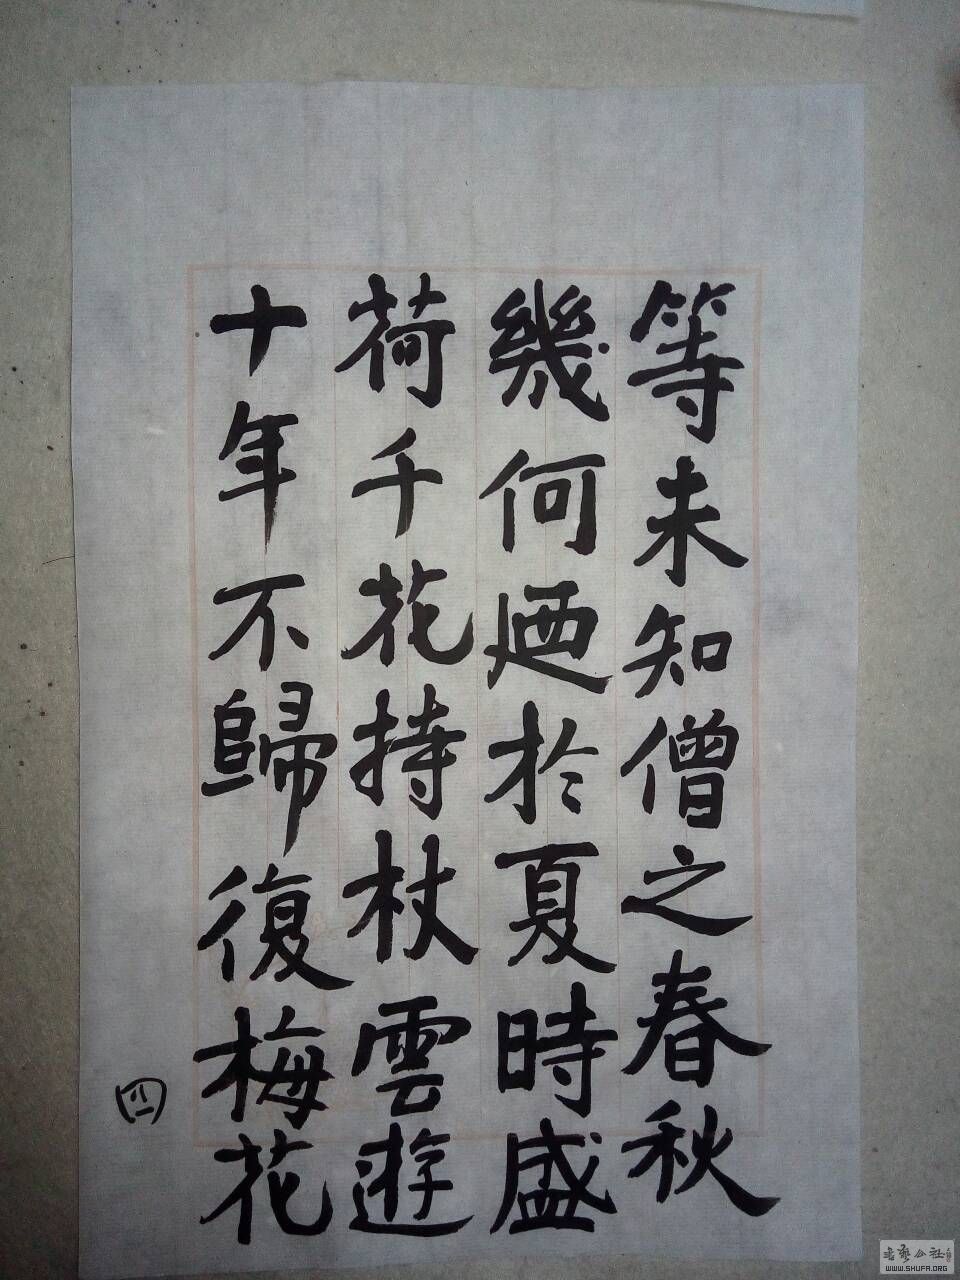 等未知僧之春秋
幾何廼於夏時盛
荷千花持杖雲遊
十年不歸復梅花
四
WWW.SHUFA.ORG